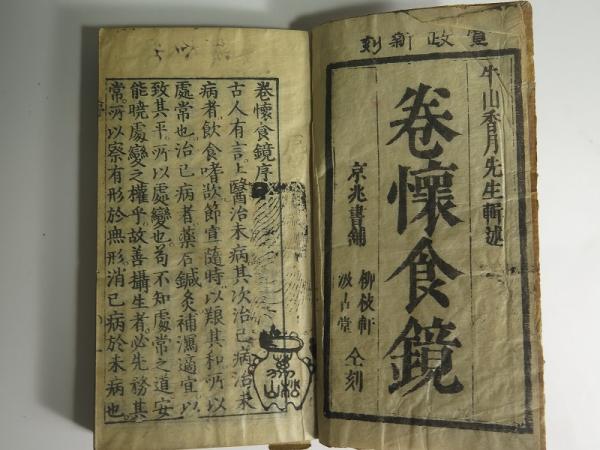 寛政新刻
牛山香月先生輯述
卷懷食鏡
京兆書舗
柳枝軒
汲古堂
仝刻
卷懷食鏡序
古人有言上醫治未病其次治已病治未
病者飲食嗜欲節宣隨時以艰其和所以
處常也治已病者藥石鍼灸補瀉適宜以
致其平所以處變也苟不知處常之道安
能曉處變之權乎故善攝生者必先務其
常所以察有形於無形消已病於未病也